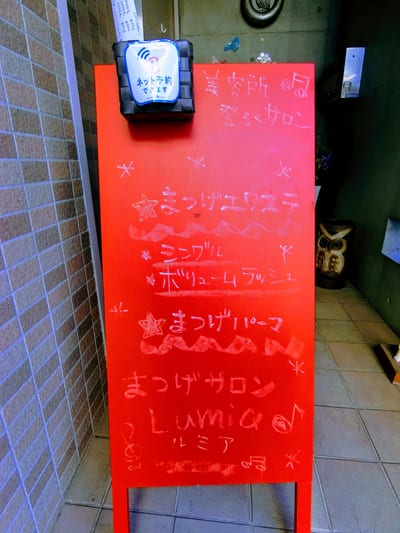 ネット予約
できます
美容所
登ろくサロン
まつげエクステ
シングル
ボリュームラッシュ
まつげパーマ
まつげサロン
Lumia
ルミア